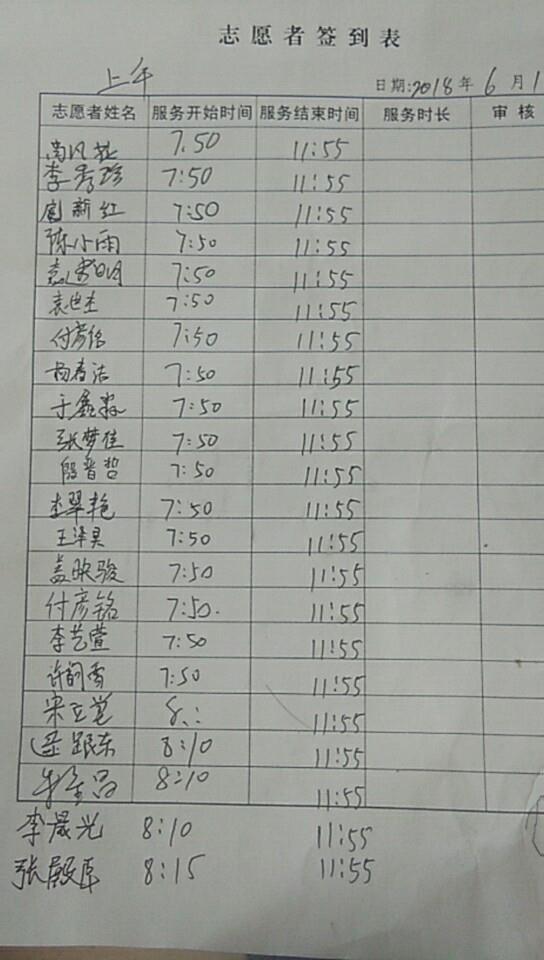 志愿者签到表
上午
日期:2018年6月1
志愿者姓名 服务开始时间 服务结束时间 服务时长 审核
7:50 11:55
李秀珍 7:50 11:55
新红 7:50 11:55
陈小雨 7:50 11:55
袁 明 7:50 11:55
袁世杰 7:50 11:55
付彦铭 7:50 11:55
杨春洁 7:50 11:55
于鑫 7:50 11:55
张梦佳 7:50 11:55
殷晋哲 7:50 11:55
李翠艳 7:50 11:55
王泽昊 7:50 11:55
孟映骏 7:50 11:55
付彦铭 7:50. 11:55
李艺萱 7:50 11:55
许 雪 7:50 11:55
宋立 8: 11:55
跟东 8:10 11:55
8:10 11:55
李晟光 8:10 11:55
张殿 8:15 11:55